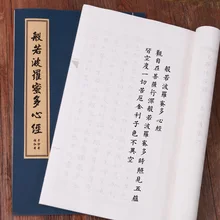 般若波羅蜜多心經
般若波羅蜜多心經
觀自在菩薩行深般若波羅蜜多時照見五蘊
皆空度一切苦厄舍利子色不異空